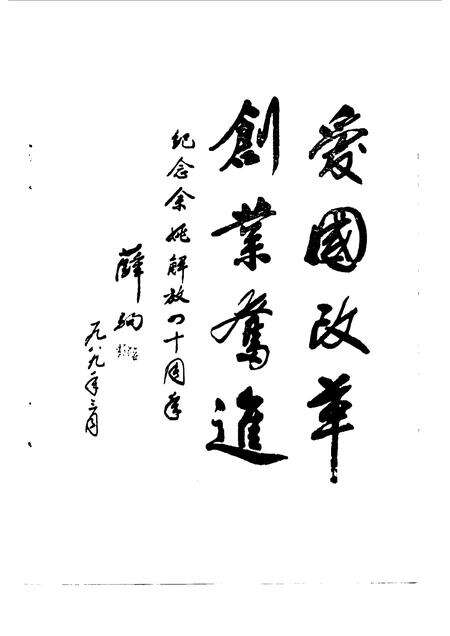 愛國改革
創業奮進
紀念余姚解放四十周年
薛駒
一九八九年三月